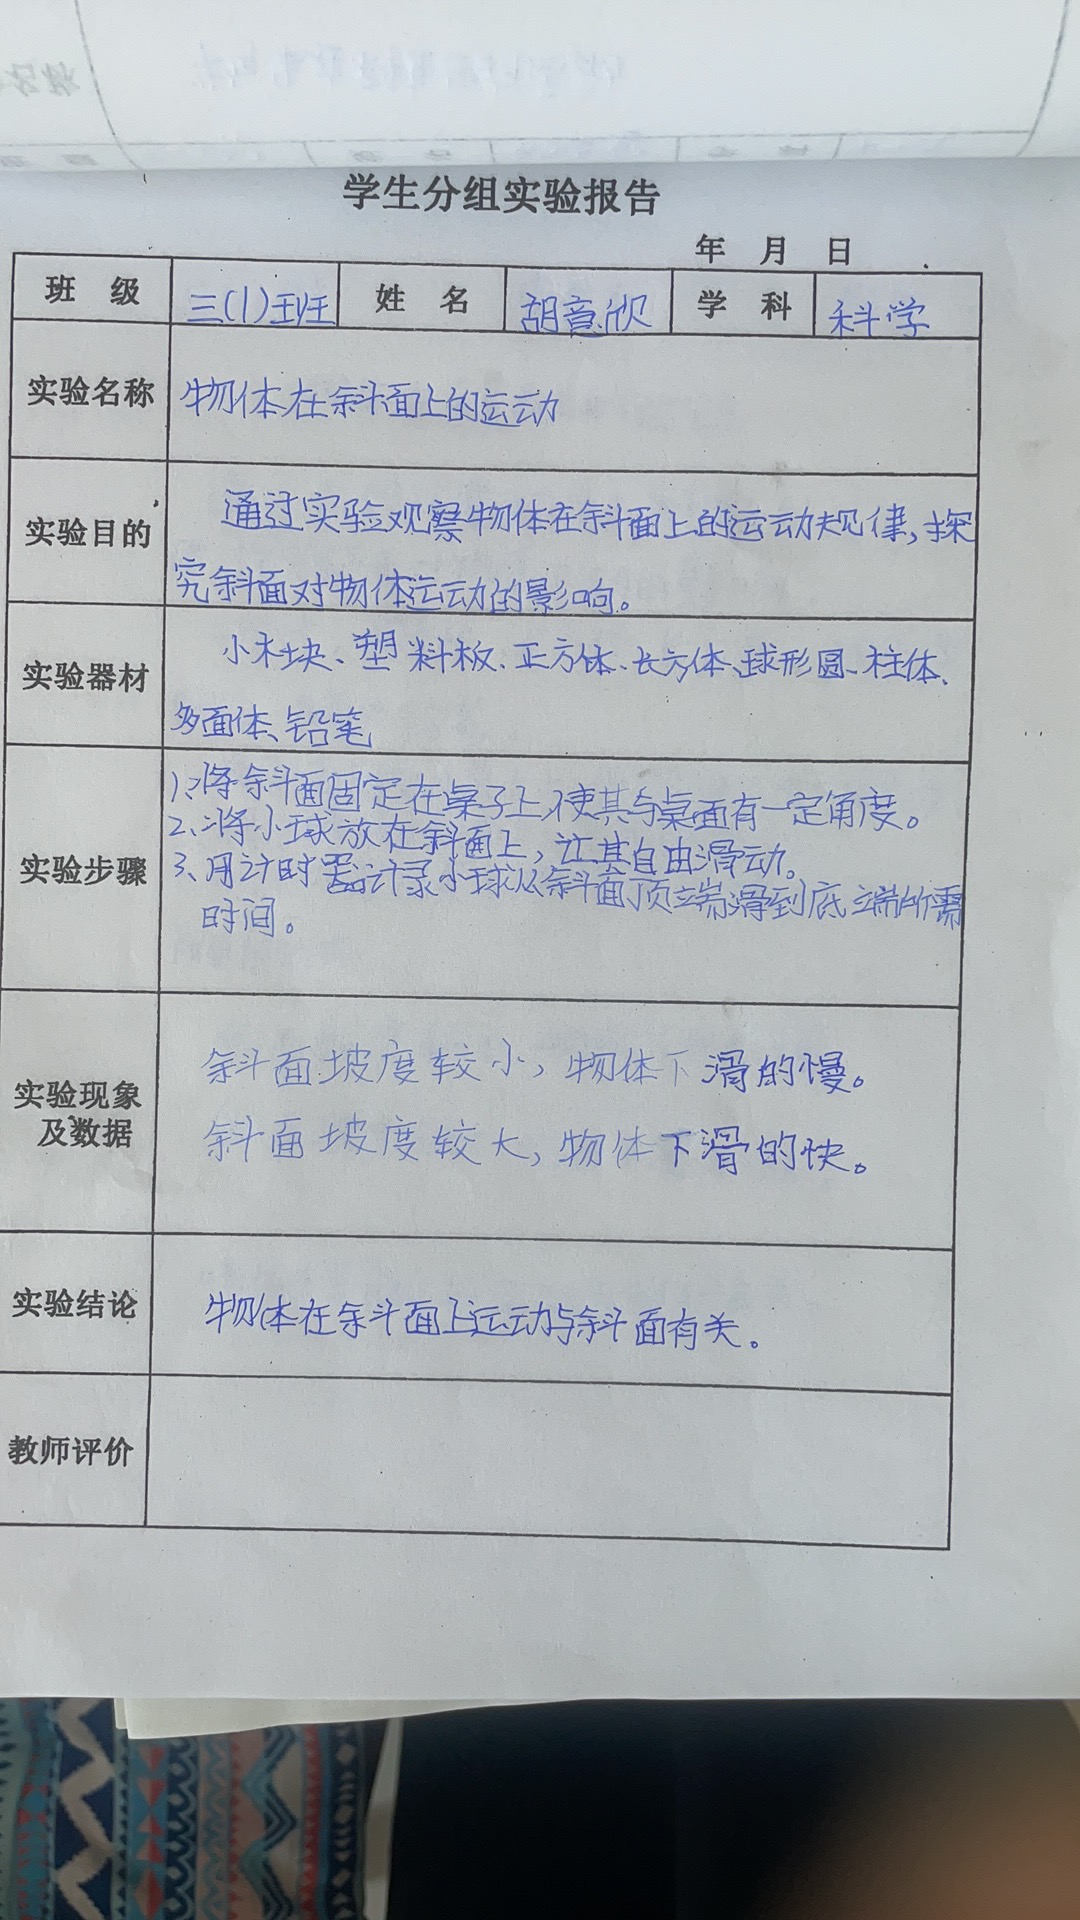 学生分组实验报告
年 月 日
班 级 三(1)班 姓 名 胡意欣 学 科 科学
实验名称 物体在斜面上的运动
实验目的 通过实验观察物体在斜面上的运动规律,探
究斜面对物体运动的影响。
实验器材 小木块、塑料板、正方体、长方体、球形圆、柱体、
多面体、铅笔
实验步骤 1、将斜面固定在桌子上,使其与桌面有一定角度。
2、将小球放在斜面上,让其自由滑动。
3、用计时器记录小球从斜面顶端滑到底端所需
时间。
实验现象
及数据
斜面坡度较小,物体下滑的慢。
斜面坡度较大,物体下滑的快。
实验结论 物体在斜面上运动与斜面有关。
教师评价